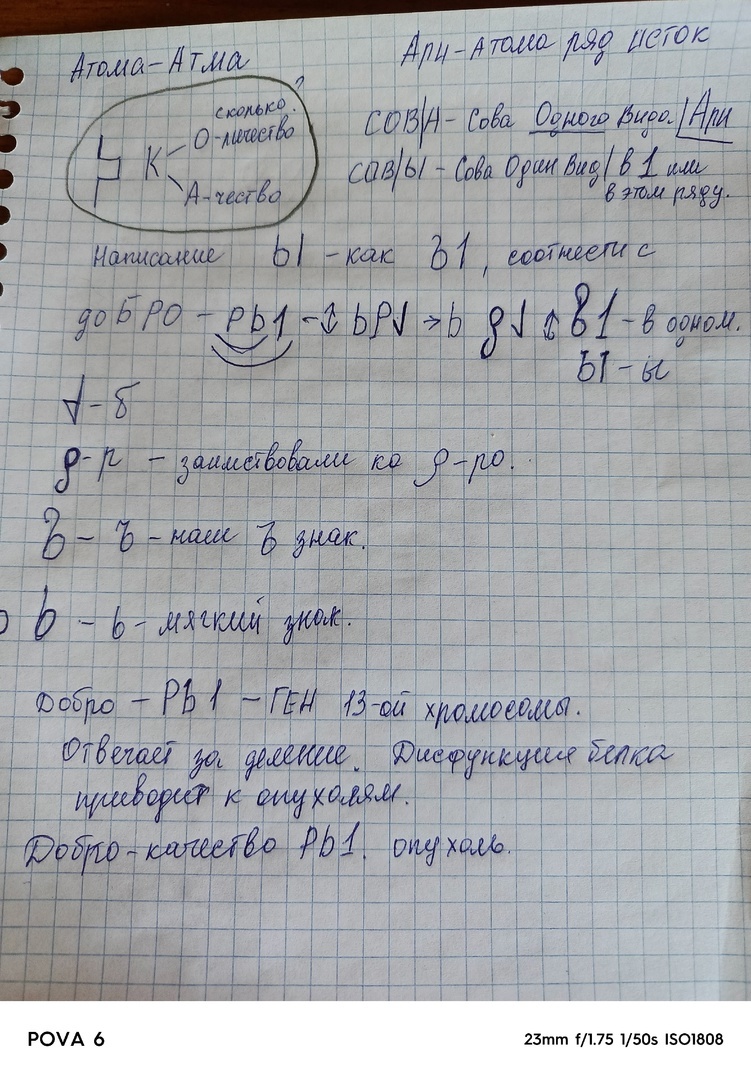 Атома-Атма
Ари-Атома ряд исток
сколько?
К О-личество
А-чество
СОВ/А - Сова Одного Вида/Ари
СОВ/Ы - Сова Один Вид/в 1 или
в этом ряду.
Написание Ы - как Ъ1, соотнести с
доБРО - Рb1 - ↕ bР√ → b g√ ↕ В1 - в одном.
Ы - ы
√ - б
р - р - заимствовали ко р - ро.
Ъ - Ъ - наш Ъ знак.
b - ь - мягкий знак.
Добро - Рb1 - ГЕН 13-ой хромосомы.
Отвечает за деление. Дисфункция белка
приводит к опухолям.
Добро-качество Рb1. опухоль.
POVA 6
23mm f/1.75 1/50s ISO1808